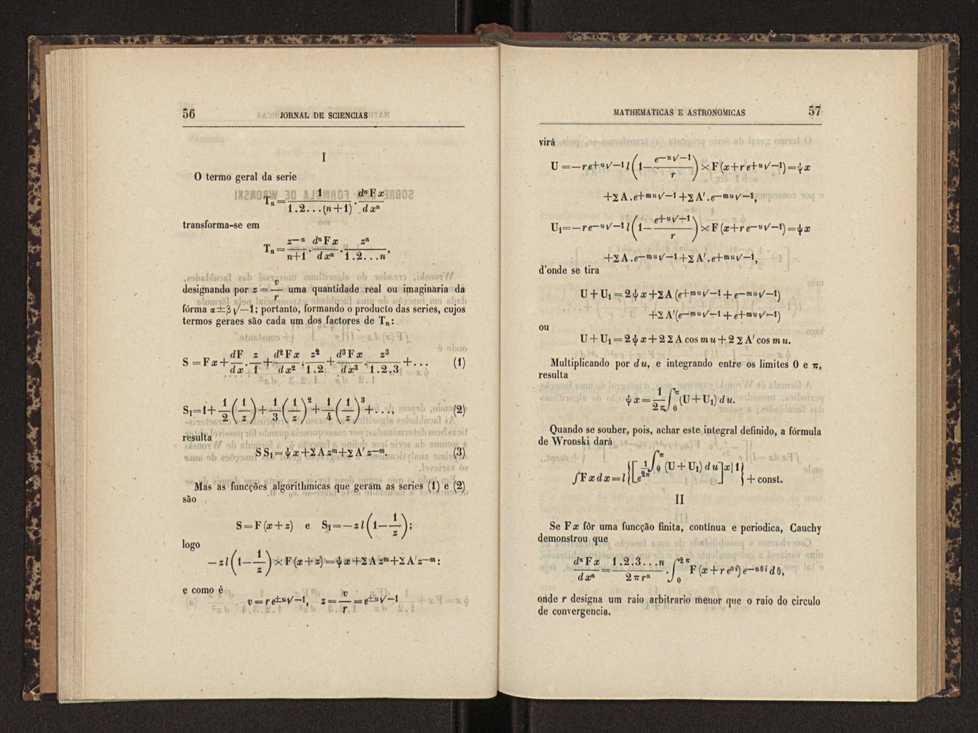 56 JORNAL DE SCIENCIAS
I
O termo geral da serie
Tₙ = 1/(1.2...(n+1)) . dⁿFx/dxⁿ
transforma-se em
Tₙ = z⁻ⁿ/(n+1) . dⁿFx/dxⁿ . zⁿ/(1.2...n),
designando por z = v/r uma quantidade real ou imaginaria da
fórma α±β√−1; portanto, formando o producto das series, cujos
termos geraes são cada um dos factores de Tₙ:
S = Fx + dF/dx . z/1 + d²Fx/dx² . z²/1.2 + d³Fx/dx³ . z³/1.2.3 + ... (1)
S₁ = 1 + 1/2 (1/z) + 1/3 (1/z)² + 1/4 (1/z)³ + ..., (2)
resulta
SS₁ = ψx + ΣAzᵐ + ΣA′z⁻ᵐ. (3)
Mas as funcções algorithmicas que geram as series (1) e (2)
são
S = F(x+z) e S₁ = −zl(1−1/z);
logo
−zl(1−1/z)×F(x+z) = ψx + ΣAzᵐ + ΣA′z⁻ᵐ:
e como é
v = re^{±u√−1}, z = v/r = e^{±u√−1}
MATHEMATICAS E ASTRONOMICAS 57
virá
U = −re^{+u√−1} l(1 − e^{−u√−1}/r) × F(x+re^{+u√−1}) = ψx
+ΣA.e^{+mu√−1} + ΣA′.e^{−mu√−1},
U₁ = −re^{−u√−1} l(1 − e^{+u√−1}/r) × F(x+re^{−u√−1}) = ψx
+ΣA.e^{−mu√−1} + ΣA′.e^{+mu√−1},
d'onde se tira
U+U₁ = 2ψx + ΣA(e^{+mu√−1} + e^{−mu√−1})
+ΣA′(e^{−mu√−1} + e^{+mu√−1})
ou
U+U₁ = 2ψx + 2ΣA cos mu + 2ΣA′ cos mu.
Multiplicando por du, e integrando entre os limites 0 e π,
resulta
ψx = 1/2π ∫₀^π (U+U₁) du.
Quando se souber, pois, achar este integral definido, a fórmula
de Wronski dará
∫Fxdx = l{[e^{1/2π ∫₀^π (U+U₁) du}]^{x|1}} + const.
II
Se Fx fôr uma funcção finita, continua e periodica, Cauchy
demonstrou que
dⁿFx/dxⁿ = 1.2.3...n/2πrⁿ . ∫₀^{2π} F(x+re^{θi})e^{−nθi}dθ,
onde r designa um raio arbitrario menor que o raio do circulo
de convergencia.